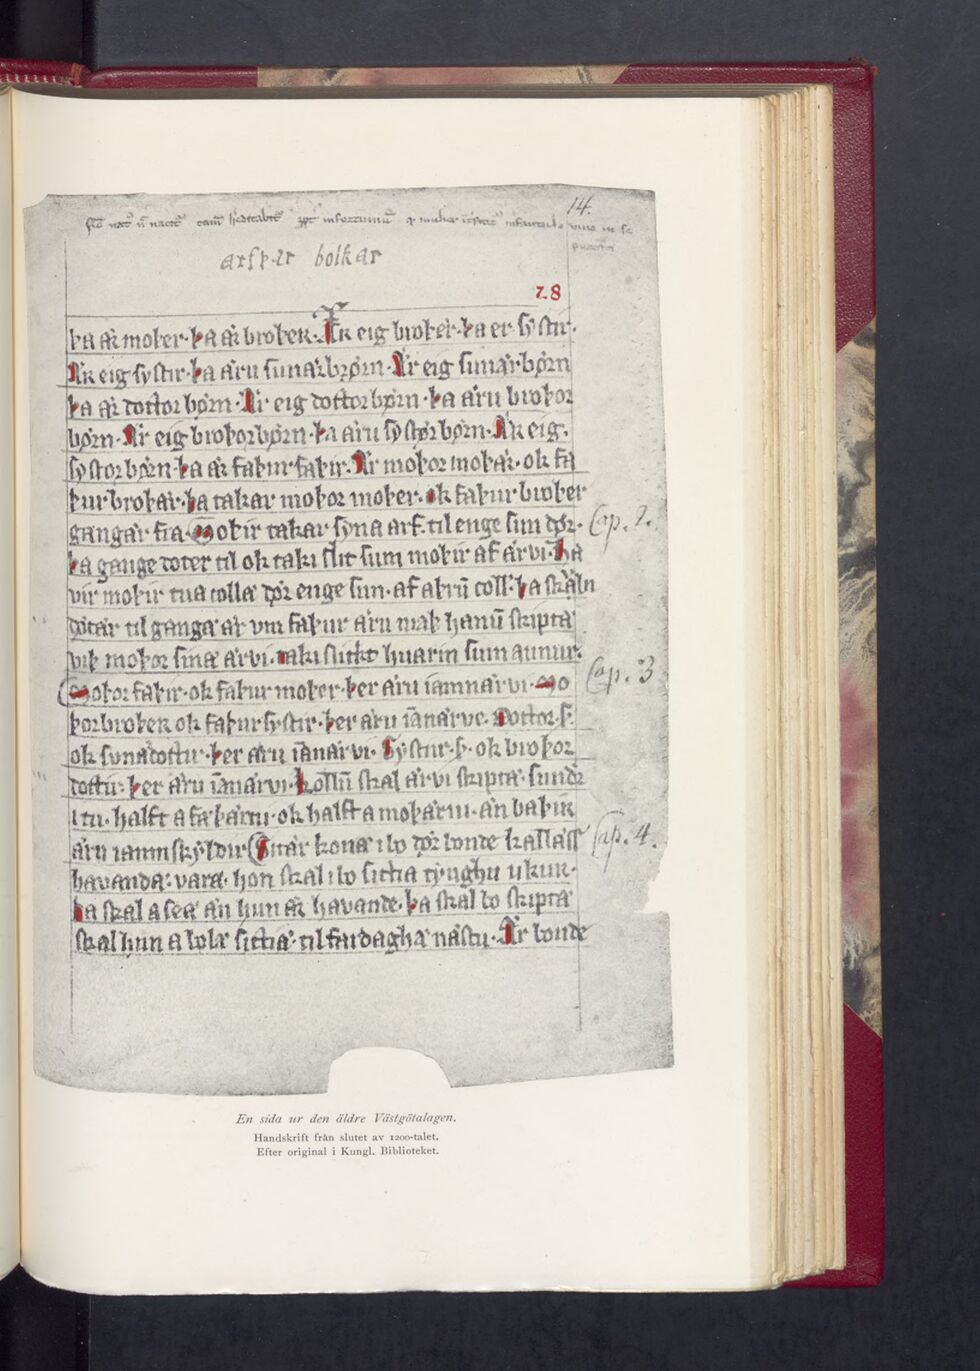 14.
arfþer bolkar
28
þa ær moþer · þa ær broþer · Ær eig broþer · þa er systir ·
Ær eig systir · þa æru sunærbørn · Ær eig sunærbørn
þa ær dottor børn · Ær eig dottor børn · þa æru broþor
børn · Ær eig broþorbørn · þa æru systorbørn · Ær eig ·
systorbørn · þa ær faþur faþir · Ær moþor moþær · ok fa
þurbroþær · þa takar moþor moþer · ok faþur broþer
gangær fra · Moþir takar syna arf · til enge sun dør · Cap. 2.
þa gange doter til ok taki slit sum moþir af ærvi · þa
vir moþir tua collæ dør enge sun · af aþrū coll · þa skulu
døtær til gangæ at vm faþur æru maþ hanū skiptæ
viþ moþor sinæ ærvi · taki slikt huarin sum annur ·
Moþor faþir · ok faþur moþer · þer æru iamnærvi · Mo Cap. 3
þorbroþer ok faþursystir · þer æru iānærve · Dottor · s ·
ok sunadottir · þer æru iānærvi · Systur · s · ok broþor
dottir · þer æru iānærvi · kollū skal ærvi skiptæ · sundr
i tu · halft a fæþærni · ok halft a moþærni · æn baþir
æru iamnskyldir Sitær konæ i bo dør bonde kallæss Cap. 4.
havandæ · væræ · hon skal i bo sittia tyughu ukur ·
þa skal a seæ æn hun ær havande · þa skal bo skiptæ
skal hun a bolæ sittiæ · til fardaghæ næstu · Ær bonde
En sida ur den äldre Västgötalagen.
Handskrift från slutet av 1200-talet.
Efter original i Kungl. Biblioteket.